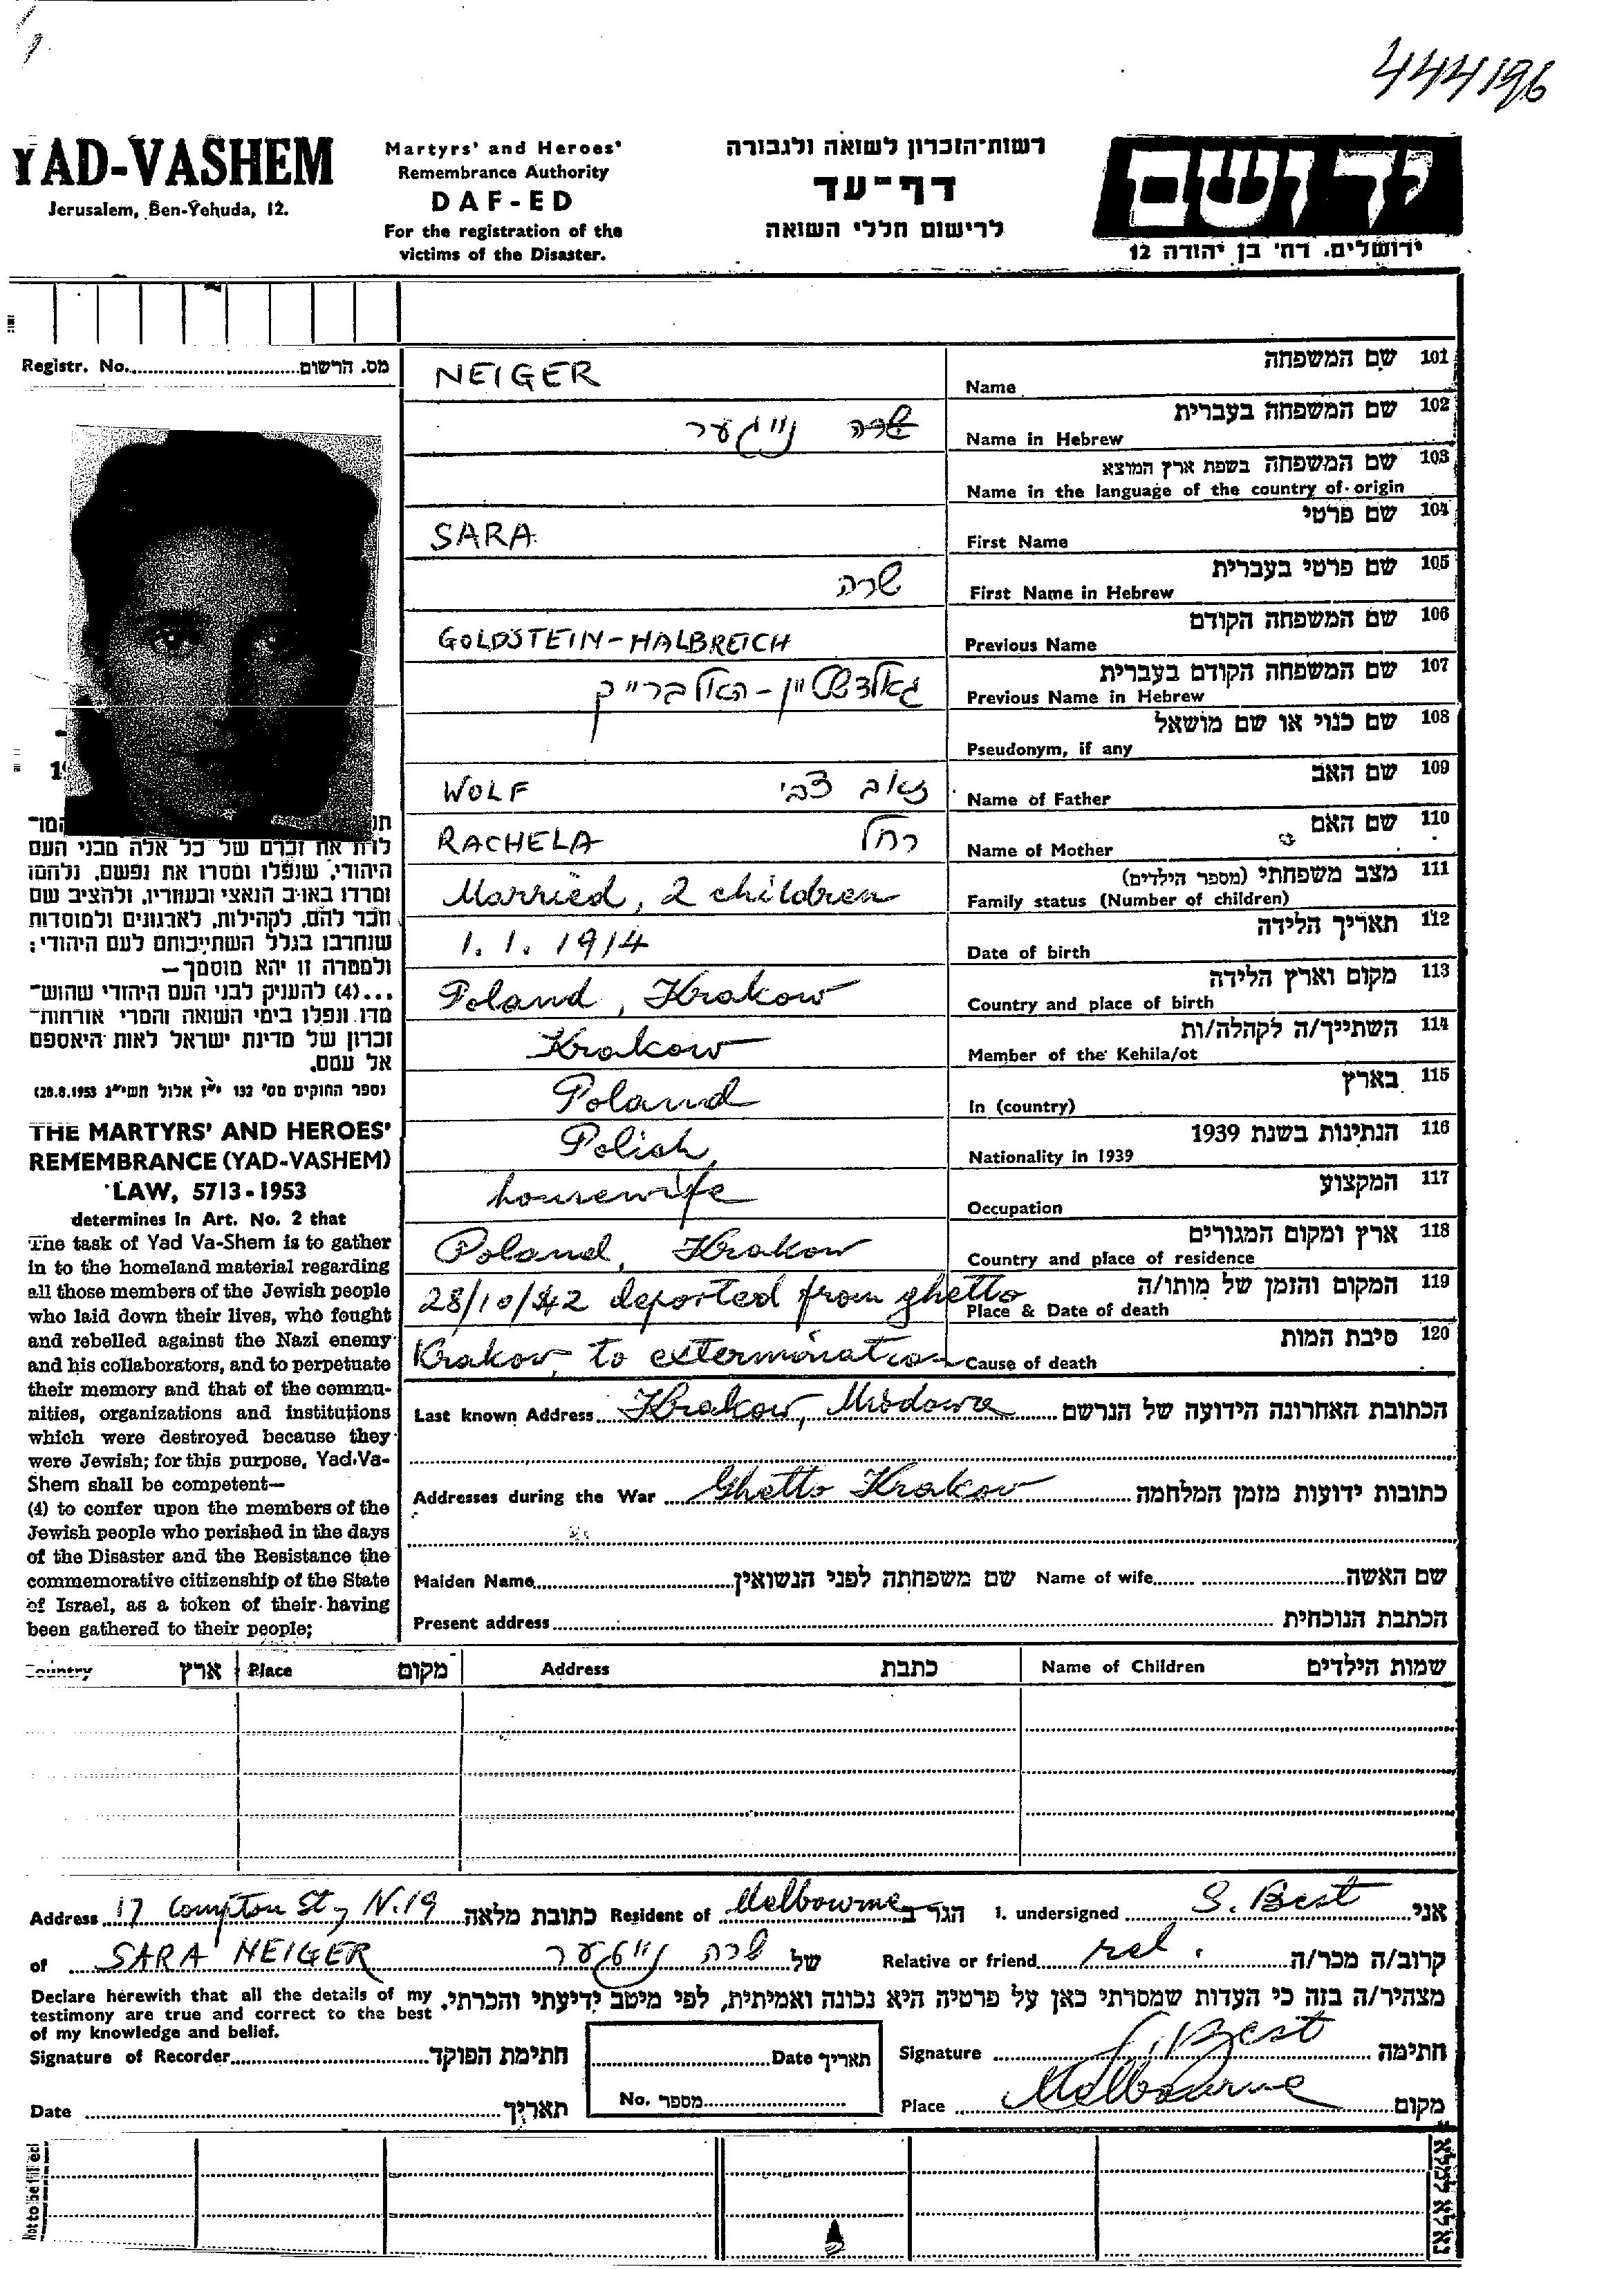 444196
YAD-VASHEM
Jerusalem, Ben-Yehuda, 12.
Martyrs' and Heroes'
Remembrance Authority
DAF-ED
For the registration of the
victims of the Disaster.
רשות-הזכרון לשואה ולגבורה
דף-עד
לרישום חללי השואה
יד ושם
ירושלים, רח' בן יהודה 12
Registr. No. מס. הרשום
NEIGER Name שם המשפחה 101
נייגער שרה Name in Hebrew שם המשפחה בעברית 102
Name in the language of the country of origin שם המשפחה בשפת ארץ המוצא 103
SARA First Name שם פרטי 104
שרה First Name in Hebrew שם פרטי בעברית 105
GOLDSTEIN-HALBREICH Previous Name שם המשפחה הקודם 106
גאלדשטיין-האלברייך Previous Name in Hebrew שם המשפחה הקודם בעברית 107
Pseudonym, if any שם כנוי או שם מושאל 108
WOLF זאב צבי Name of Father שם האב 109
RACHELA רחל Name of Mother שם האם 110
Married, 2 children Family status (Number of children) מצב משפחתי (מספר הילדים) 111
1. 1. 1914 Date of birth תאריך הלידה 112
Poland, Krakow Country and place of birth מקום וארץ הלידה 113
Krakow Member of the Kehila/ot השתייך/ה לקהלה/ות 114
Poland In (country) בארץ 115
Polish Nationality in 1939 הנתינות בשנת 1939 116
housewife Occupation המקצוע 117
Poland, Krakow Country and place of residence ארץ ומקום המגורים 118
28/10/42 deported from ghetto Place & Date of death המקום והזמן של מותו/ה 119
Krakow to extermination Cause of death סיבת המות 120
לרת את זכרם של כל אלה מבני העם
היהודי, שנפלו ומסרו את נפשם, נלחמו
ומרדו באויב הנאצי ובעוזריו, ולהציב שם
וזכר להם, לקהילות, לארגונים ולמוסדות
שנחרבו בגלל השתייכותם לעם היהודי;
ולמטרה זו יהא מוסמך—
...(4) להעניק לבני העם היהודי שהוש־
מדו ונפלו בימי השואה והמרי אזרחות־
זכרון של מדינת ישראל לאות היאספם
אל עמם.
(ספר החוקים מס' 132 י"ז אלול תשי"ג 28.8.1953)
THE MARTYRS' AND HEROES'
REMEMBRANCE (YAD-VASHEM)
LAW, 5713-1953
determines in Art. No. 2 that
The task of Yad Va-Shem is to gather
in to the homeland material regarding
all those members of the Jewish people
who laid down their lives, who fought
and rebelled against the Nazi enemy
and his collaborators, and to perpetuate
their memory and that of the commu-
nities, organizations and institutions
which were destroyed because they
were Jewish; for this purpose, Yad-Va-
Shem shall be competent—
(4) to confer upon the members of the
Jewish people who perished in the days
of the Disaster and the Resistance the
commemorative citizenship of the State
of Israel, as a token of their having
been gathered to their people;
Last known Address Krakow, Miodowa הכתובת האחרונה הידועה של הנרשם
Addresses during the War Ghetto Krakow כתובות ידועות מזמן המלחמה
Maiden Name שם משפחתה לפני הנשואין Name of wife שם האשה
Present address הכתבת הנוכחית
Country ארץ Place מקום Address כתבת Name of Children שמות הילדים
Address 17 Compton St, N.19 כתובת מלאה Resident of Melbourne הגר ב I. undersigned S. Best אני
of SARA NEIGER שרה נייגער של Relative or friend rel. קרוב/ה מכר/ה
Declare herewith that all the details of my
testimony are true and correct to the best
of my knowledge and belief.
מצהיר/ה בזה כי העדות שמסרתי כאן על פרטיה היא נכונה ואמיתית, לפי מיטב ידיעתי והכרתי.
Signature of Recorder חתימת הפוקד Date תאריך Signature S. Best חתימה
Date תאריך No. מספר Place Melbourne מקום
Not to be filled
נא לא למלא